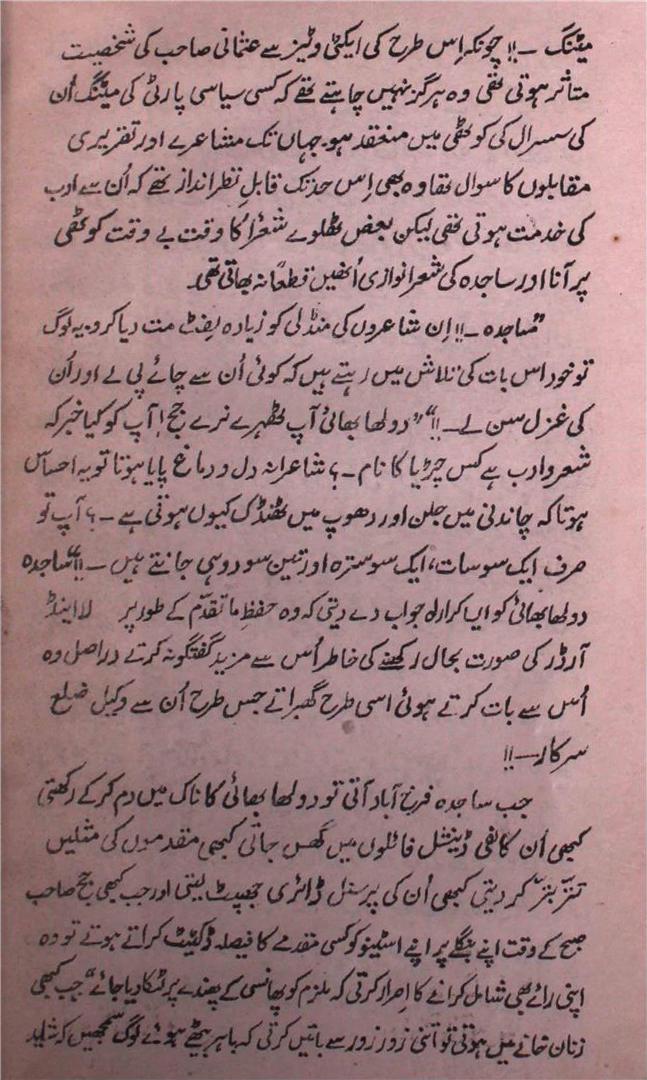 میٹنگ ۔!! چونکہ اِس طرح کی ایکٹی وٹیز سے عثمانی صاحب کی شخصیت
متاثر ہوتی تھی وہ ہرگز نہیں چاہتے تھے کہ کسی سیاسی پارٹی کی میٹنگ اُن
کی سسرال کی کوٹھی میں منعقد ہو۔ جہاں تک مشاعرے اور تقریری
مقابلوں کا سوال تھا وہ بھی اِس حد تک قابلِ نظر انداز تھے کہ اُن سے ادب
کی خدمت ہوتی تھی لیکن بعض ٹھلوے شعرأ کا وقت بے وقت کوٹھی
پر آنا اور ساجدہ کی شعرا نوازی اُنھیں قطعاً نہ بھاتی تھی۔
"ساجدہ ۔!! اِن شاعروں کی منڈلی کو زیادہ لفٹ مت دیا کرو۔ یہ لوگ
تو خود اس بات کی تلاش میں رہتے ہیں کہ کوئی اُن سے چائے پی لے اور اُن
کی غزل سن لے ۔!!" "دولھا بھائی آپ ٹھہرے نرے جج! آپ کو کیا خبر کہ
شعر و ادب ہے کس چڑیا کا نام ۔؟ شاعرانہ دل و دماغ پایا ہوتا تو یہ احساس
ہوتا کہ چاندنی میں جلن اور دھوپ میں ٹھنڈک کیوں ہوتی ہے ۔؟ آپ تو
صرف ایک سو سات، ایک سو سترہ اور تین سو دو ہی جانتے ہیں ۔!!" ساجدہ
دولھا بھائی کو ایسا کرارا جواب دے دیتی کہ وہ حفظِ ماتقدّم کے طور پر لا اینڈ
آرڈر کی صورت بحال رکھنے کی خاطر اُس سے مزید گفتگو نہ کرتے دراصل وہ
اُس سے بات کرتے ہوئی اسی طرح گھبراتے جس طرح اُن سے وکیل ضلع
سرکار ۔!!
جب ساجدہ فرخ آباد آتی تو دولھا بھائی کا ناک میں دم کر کے رکھتی
کبھی اُن کانفی ڈینشل فائلوں میں گھس جاتی کبھی مقدموں کی مثلیں
تتّر بتّر کر دیتی کبھی اُن کی پرسنل ڈائری جھپٹ لیتی اور جب کبھی جج صاحب
صبح کے وقت اپنے بنگلے پر اپنے اسٹینو کو کسی مقدمے کا فیصلہ ڈکٹیٹ کراتے ہوتے تو وہ
اپنی رائے بھی شامل کرانے کا اصرار کرتی کہ ملزم کو پھانسی کے پھندے پر لٹکا دیا جائے" جب کبھی
زنان خانے میں ہوتی تو اتنی زور زور سے باتیں کرتی کہ باہر بیٹھے ہوئے لوگ سمجھیں کہ شاید